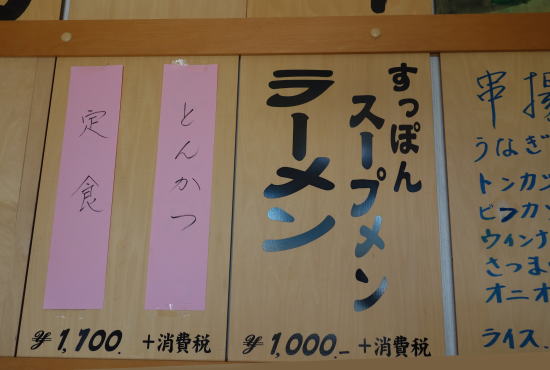 とんかつ
定食
¥1,100. +消費税
すっぽん
スープメン
ラーメン
¥1,000.- +消費税
串揚
うなぎ
トンカツ
ビフカツ
ウィンナ
さつま
オニオ
ライス